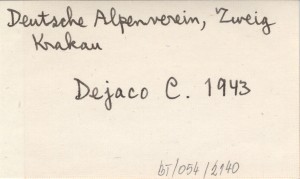 Deutsche Alpenverein, Zweig
Krakau
Dejaco C. 1943
bT/054/2140